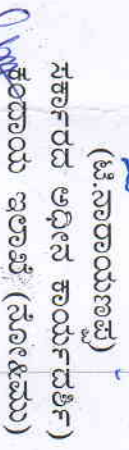 (ಟಿ.ನಾರಾಯಣಪ್ಪ)
ಸರ್ಕಾರದ ಅಧೀನ ಕಾರ್ಯದರ್ಶಿ)
ಕಂದಾಯ ಇಲಾಖೆ (ನೋ&ಮು)